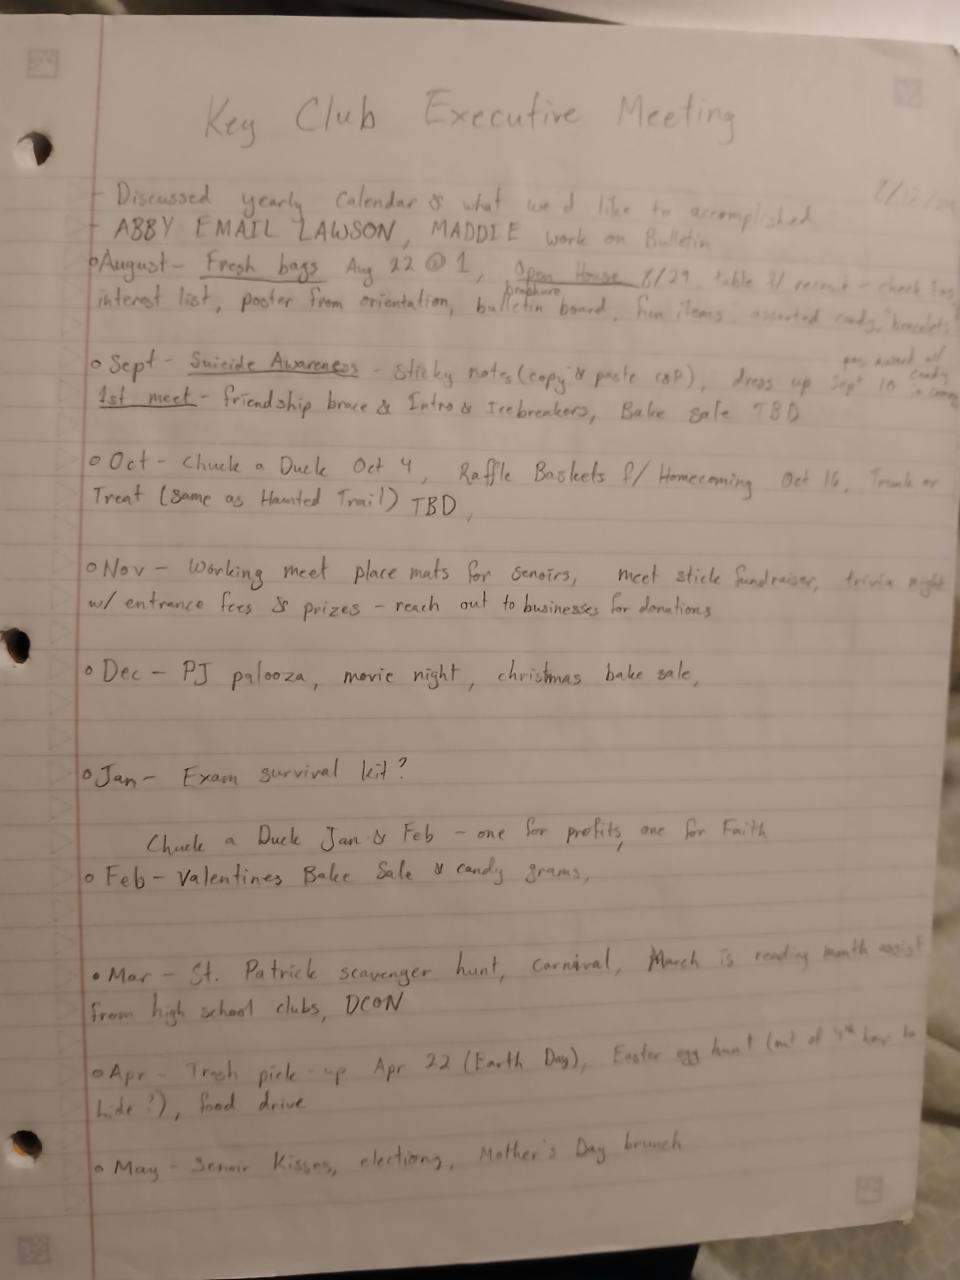 Key Club Executive Meeting
8/12/24
- Discussed yearly Calendar & what we'd like to accomplished
- ABBY EMAIL LAWSON, MADDIE work on Bulletin
August - Fresh bags Aug 22 @ 1, Open House 8/29, table w/ recruit - check
brochure
interest list, poster from orientation, bulletin board, fun items, assorted candy, bracelets
candy
Sept - Suicide Awareness - Sticky notes (copy & paste), dress up Sept 10
1st meet - friendship brace & Intro & Icebreakers, Bake sale TBD
Oct - Chuck a Duck Oct 4, Raffle Baskets f/ Homecoming Oct 16, Trunk or
Treat (same as Haunted Trail) TBD,
Nov - Working meet place mats for senoirs, meet stick fundraiser, trivia night
w/ entrance fees & prizes - reach out to businesses for donations
Dec - PJ palooza, movie night, christmas bake sale,
Jan - Exam survival kit?
Chuck a Duck Jan & Feb - one for profits, one for Faith
Feb - Valentines Bake Sale & candy grams,
Mar - St. Patrick scavenger hunt, Carnival, March is reading month assist
from high school clubs, DCON
Apr - Trash pick-up Apr 22 (Earth Day), Easter egg hunt (out of 4th hour to
hide?), food drive
May - Senoir Kisses, elections, Mother's Day brunch